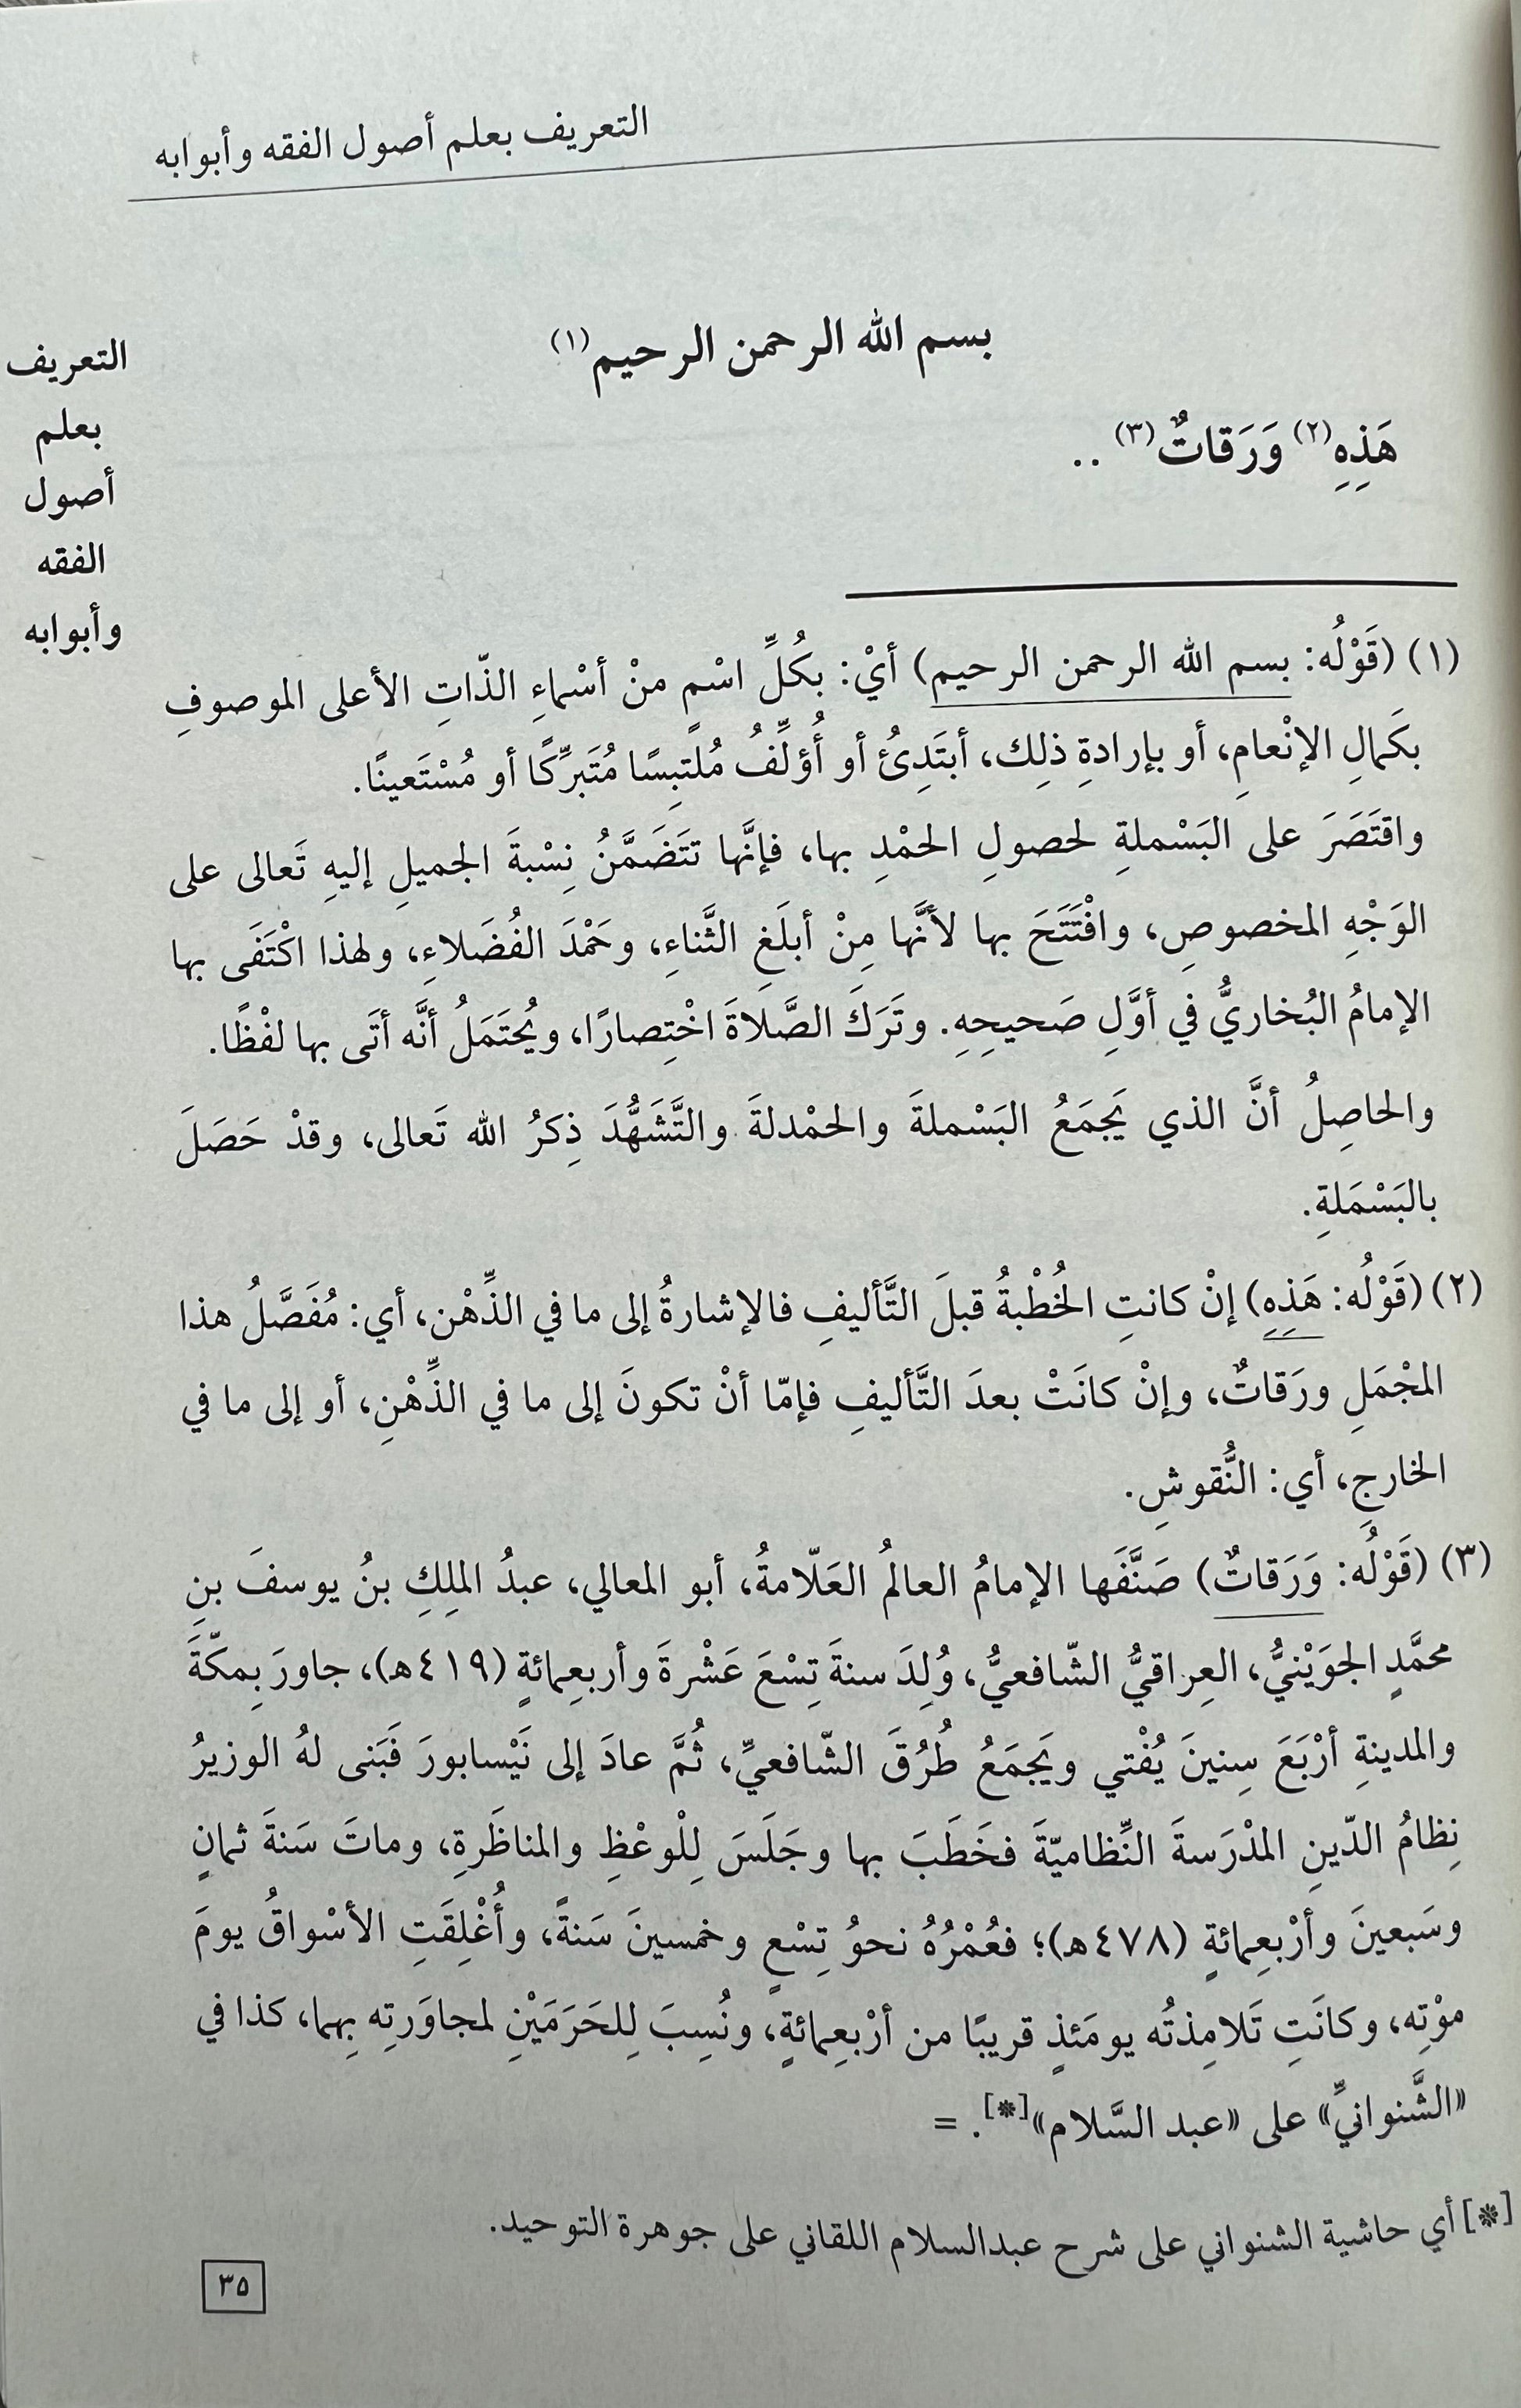 التعريف بعلم أصول الفقه وأبوابه
بسم الله الرحمن الرحيم(١)
هَذِهِ(٢) وَرَقاتٌ(٣) ..
التعريف
بعلم
أصول
الفقه
وأبوابه
(١) (قَوْلُه: بسم الله الرحمن الرحيم) أيْ: بكُلِّ اسْمٍ منْ أسْماءِ الذّاتِ الأعلى الموصوفِ
بكَمالِ الإنْعامِ، أو بإرادةِ ذلِك، أبتَدِئُ أو أُؤلِّفُ مُلتَبِسًا مُتَبرِّكًا أو مُسْتَعينًا.
واقتَصَرَ على البَسْملةِ لحصولِ الحمْدِ بها، فإنَّها تتَضَمَّنُ نِسْبةَ الجميلِ إليهِ تَعالى على
الوَجْهِ المخصوصِ، وافْتَتَحَ بها لأنَّها مِنْ أبلَغِ الثَّناءِ، وحَمْدَ الفُضَلاءِ، ولهذا اكْتَفَى بها
الإمامُ البُخاريُّ في أوَّلِ صَحيحِهِ. وتَرَكَ الصَّلاةَ اخْتِصارًا، ويُحتَمَلُ أنَّه أتَى بها لفْظًا.
والحاصِلُ أنَّ الذي يَجمَعُ البَسْملةَ والحمْدلةَ والتَّشَهُّدَ ذِكرُ الله تَعالى، وقدْ حَصَلَ
بالبَسْمَلةِ.
(٢) (قَوْلُه: هَذِهِ) إنْ كانتِ الخُطْبةُ قبلَ التَّأليفِ فالإشارةُ إلى ما في الذِّهْن، أي: مُفَصَّلُ هذا
المجْمَلِ ورَقاتٌ، وإنْ كانَتْ بعدَ التَّأليفِ فإمّا أنْ تكونَ إلى ما في الذِّهْنِ، أو إلى ما في
الخارجِ، أي: النُّقوشِ.
(٣) (قَوْلُه: وَرَقاتٌ) صَنَّفَها الإمامُ العالمُ العَلّامةُ، أبو المعالي، عبدُ الملِكِ بنُ يوسفَ بنِ
محمَّدٍ الجوَيْنيُّ، العِراقيُّ الشّافعيُّ، وُلِدَ سنةَ تِسْعَ عَشْرةَ وأربعِمائةٍ (٤١٩هـ)، جاورَ بِمكّةَ
والمدينةِ أرْبَعَ سِنينَ يُفْتي ويَجمَعُ طُرُقَ الشّافعيِّ، ثُمَّ عادَ إلى نَيْسابورَ فَبَنى لهُ الوزيرُ
نِظامُ الدّينِ المدْرَسةَ النِّظاميّةَ فخَطَبَ بها وجَلَسَ لِلْوعْظِ والمناظَرةِ، وماتَ سَنةَ ثمانٍ
وسَبعينَ وأرْبعِمائةٍ (٤٧٨هـ)؛ فعُمْرُهُ نحوُ تِسْعٍ وخمسينَ سَنةً، وأُغْلِقَتِ الأسْواقُ يومَ
موْتِه، وكانَتِ تَلامِذتُه يومَئذٍ قريبًا من أرْبعِمائةٍ، ونُسِبَ لِلحَرَمَيْنِ لمجاوَرتِه بِهما، كذا في
«الشَّنوانيِّ» على «عبد السَّلام»[*]. =
[*] أي حاشية الشنواني على شرح عبدالسلام اللقاني على جوهرة التوحيد.
٣٥